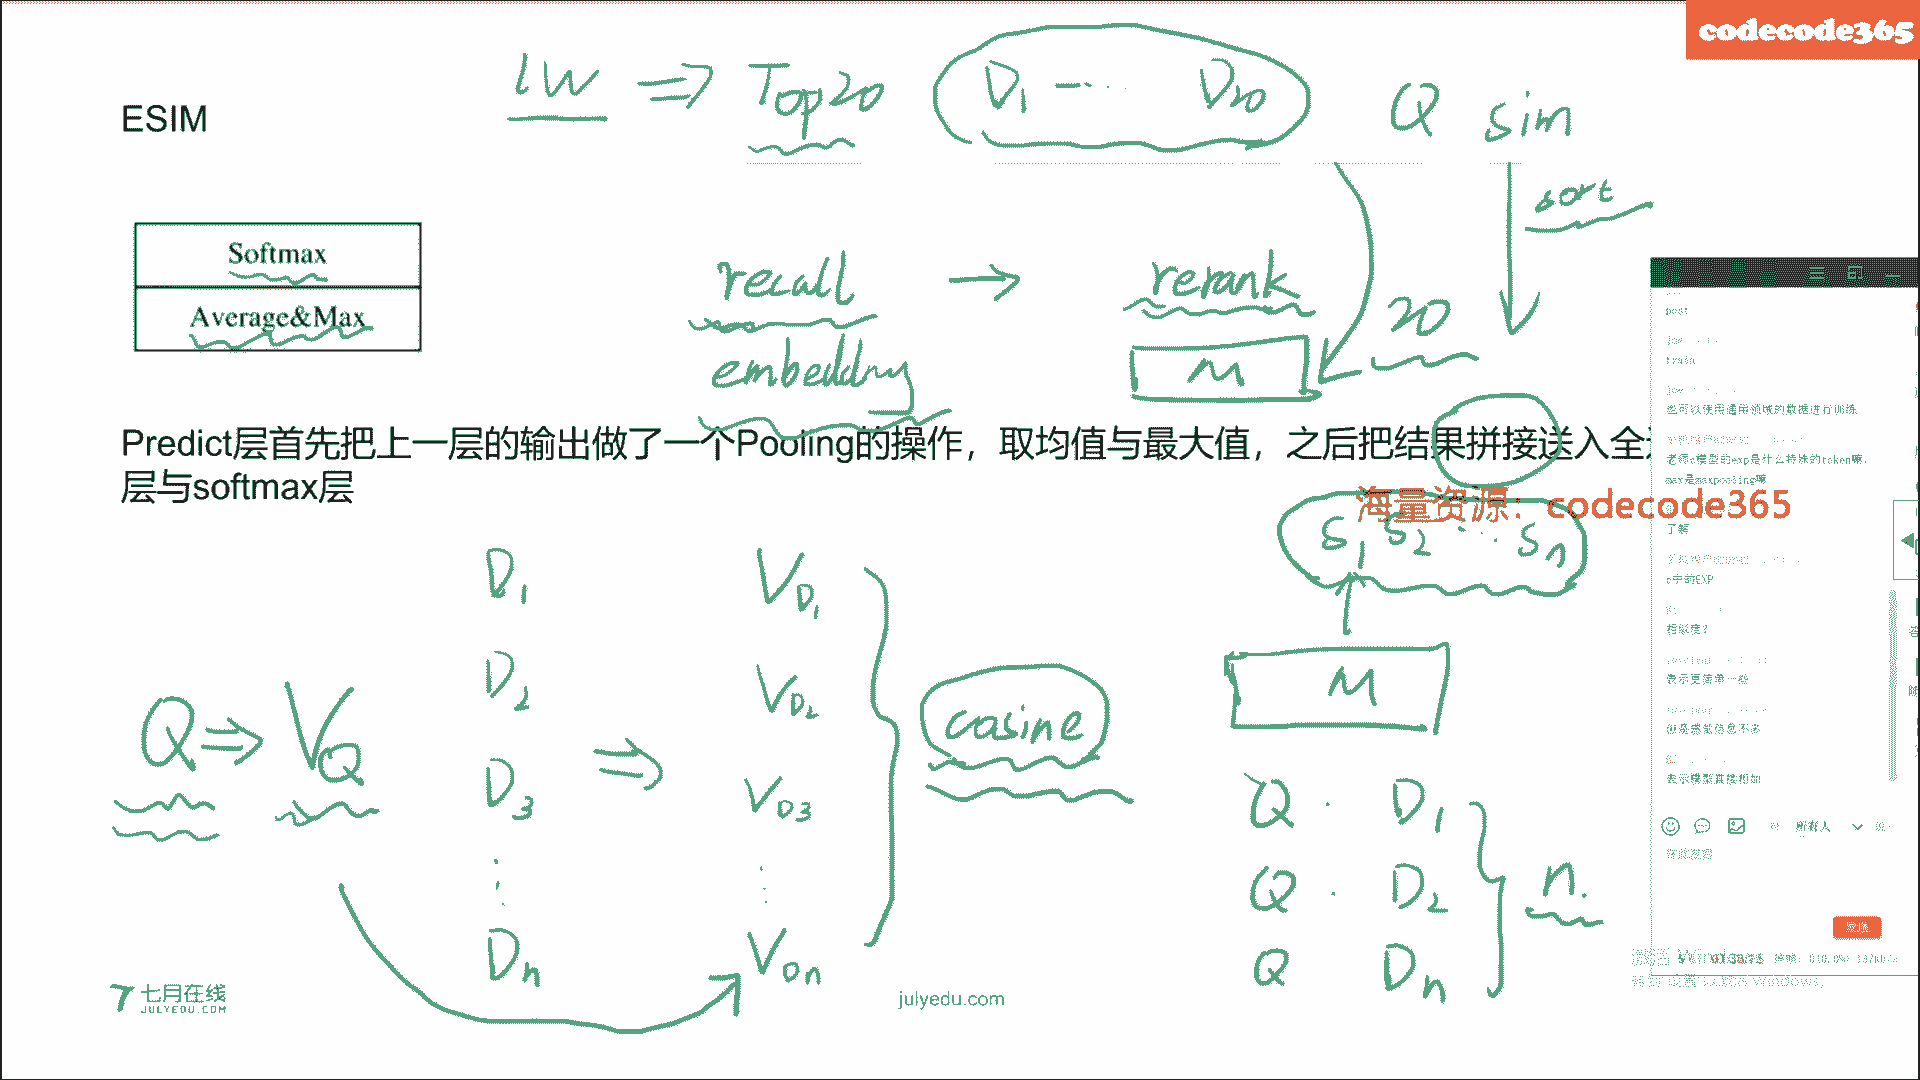 codecode365
1W ⇒ Top20 D1 --... D20 Q sim
ESIM
sort
Softmax
Average&Max
recall → rerank
20
embedding
M
Predict层首先把上一层的输出做了一个Pooling的操作，取均值与最大值，之后把结果拼接送入全
层与softmax层
海量资源：codecode365
S1 S2 ... Sn
D1 VD1
D2 VD2
M
Q ⇒ VQ
cosine
⇒
D3 VD3
Q · D1
Q · D2
n.
Dn VDn
Q Dn
七月在线
JULYEDU.COM
julyedu.com
post
train
也可以使用通用领域的数据进行训练
max是maxpooling嘛
了解
e中的EXP
相似度？
表示更简单一些
但是感觉信息不多
表示模型直接相加
所有人
发送